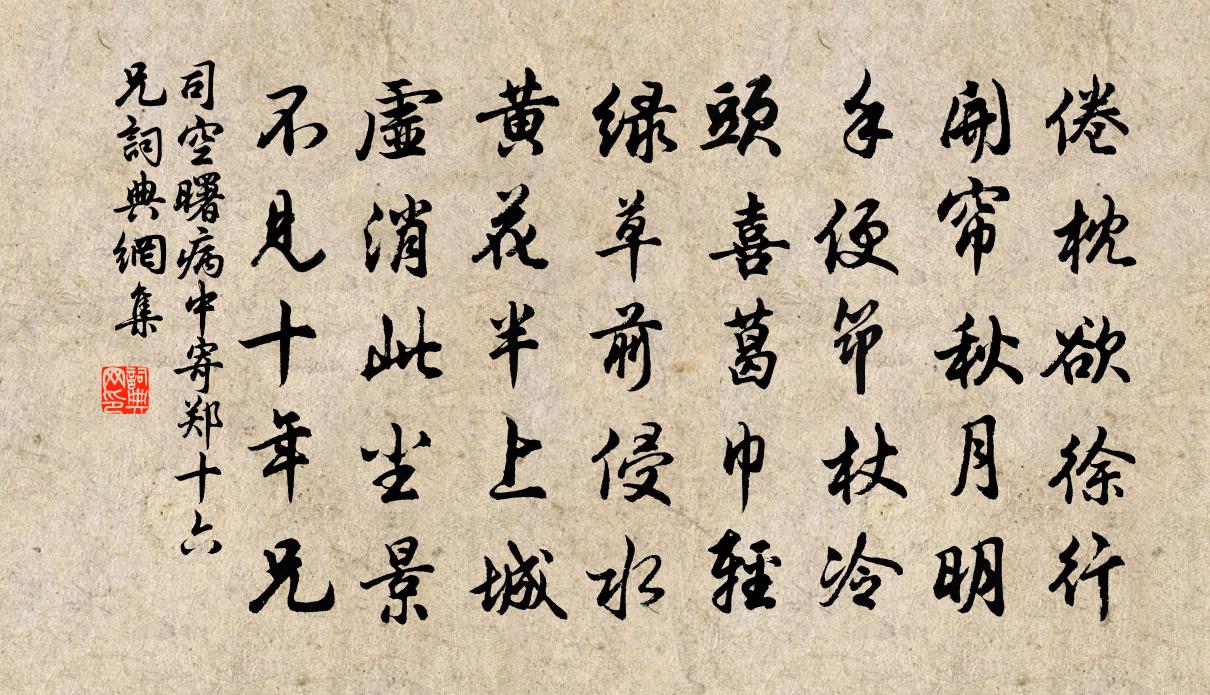 倦枕欲徐行
開帘秋月明
手便筇杖冷
頭喜葛巾輕
绿草前侵水
黄花半上城
虛消此尘景
不見十年兄
司空曙病中寄郑十六
兄詞典網集
詞典
网印